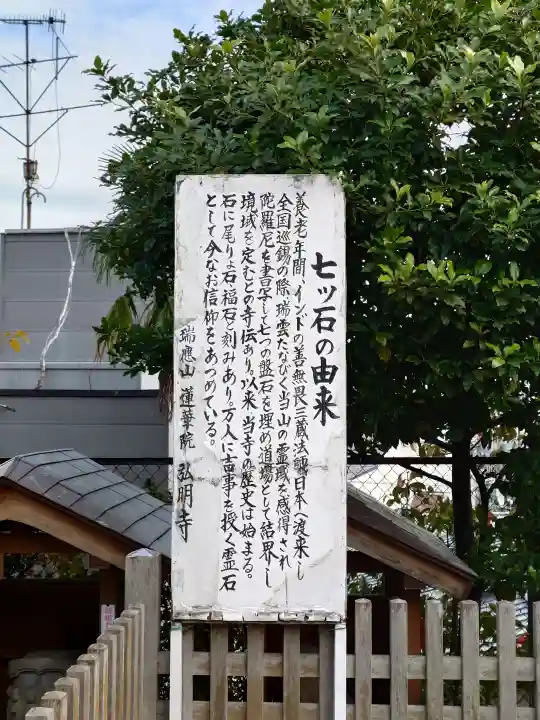 七ッ石の由来
養老年間、インドの善無畏三蔵法師日本へ渡来し
全国巡錫の際、瑞雲たなびく当山の霊域を感得され
陀羅尼を書写し七つの盤石を埋め道場として結界し
境域を定むとの寺伝あり。以来当寺の歴史は始まる。
石に尾りょ石福石と刻みあり。万人に吉事を授く霊石
として今なお信仰をあつめている。
瑞應山 蓮華院 弘明寺